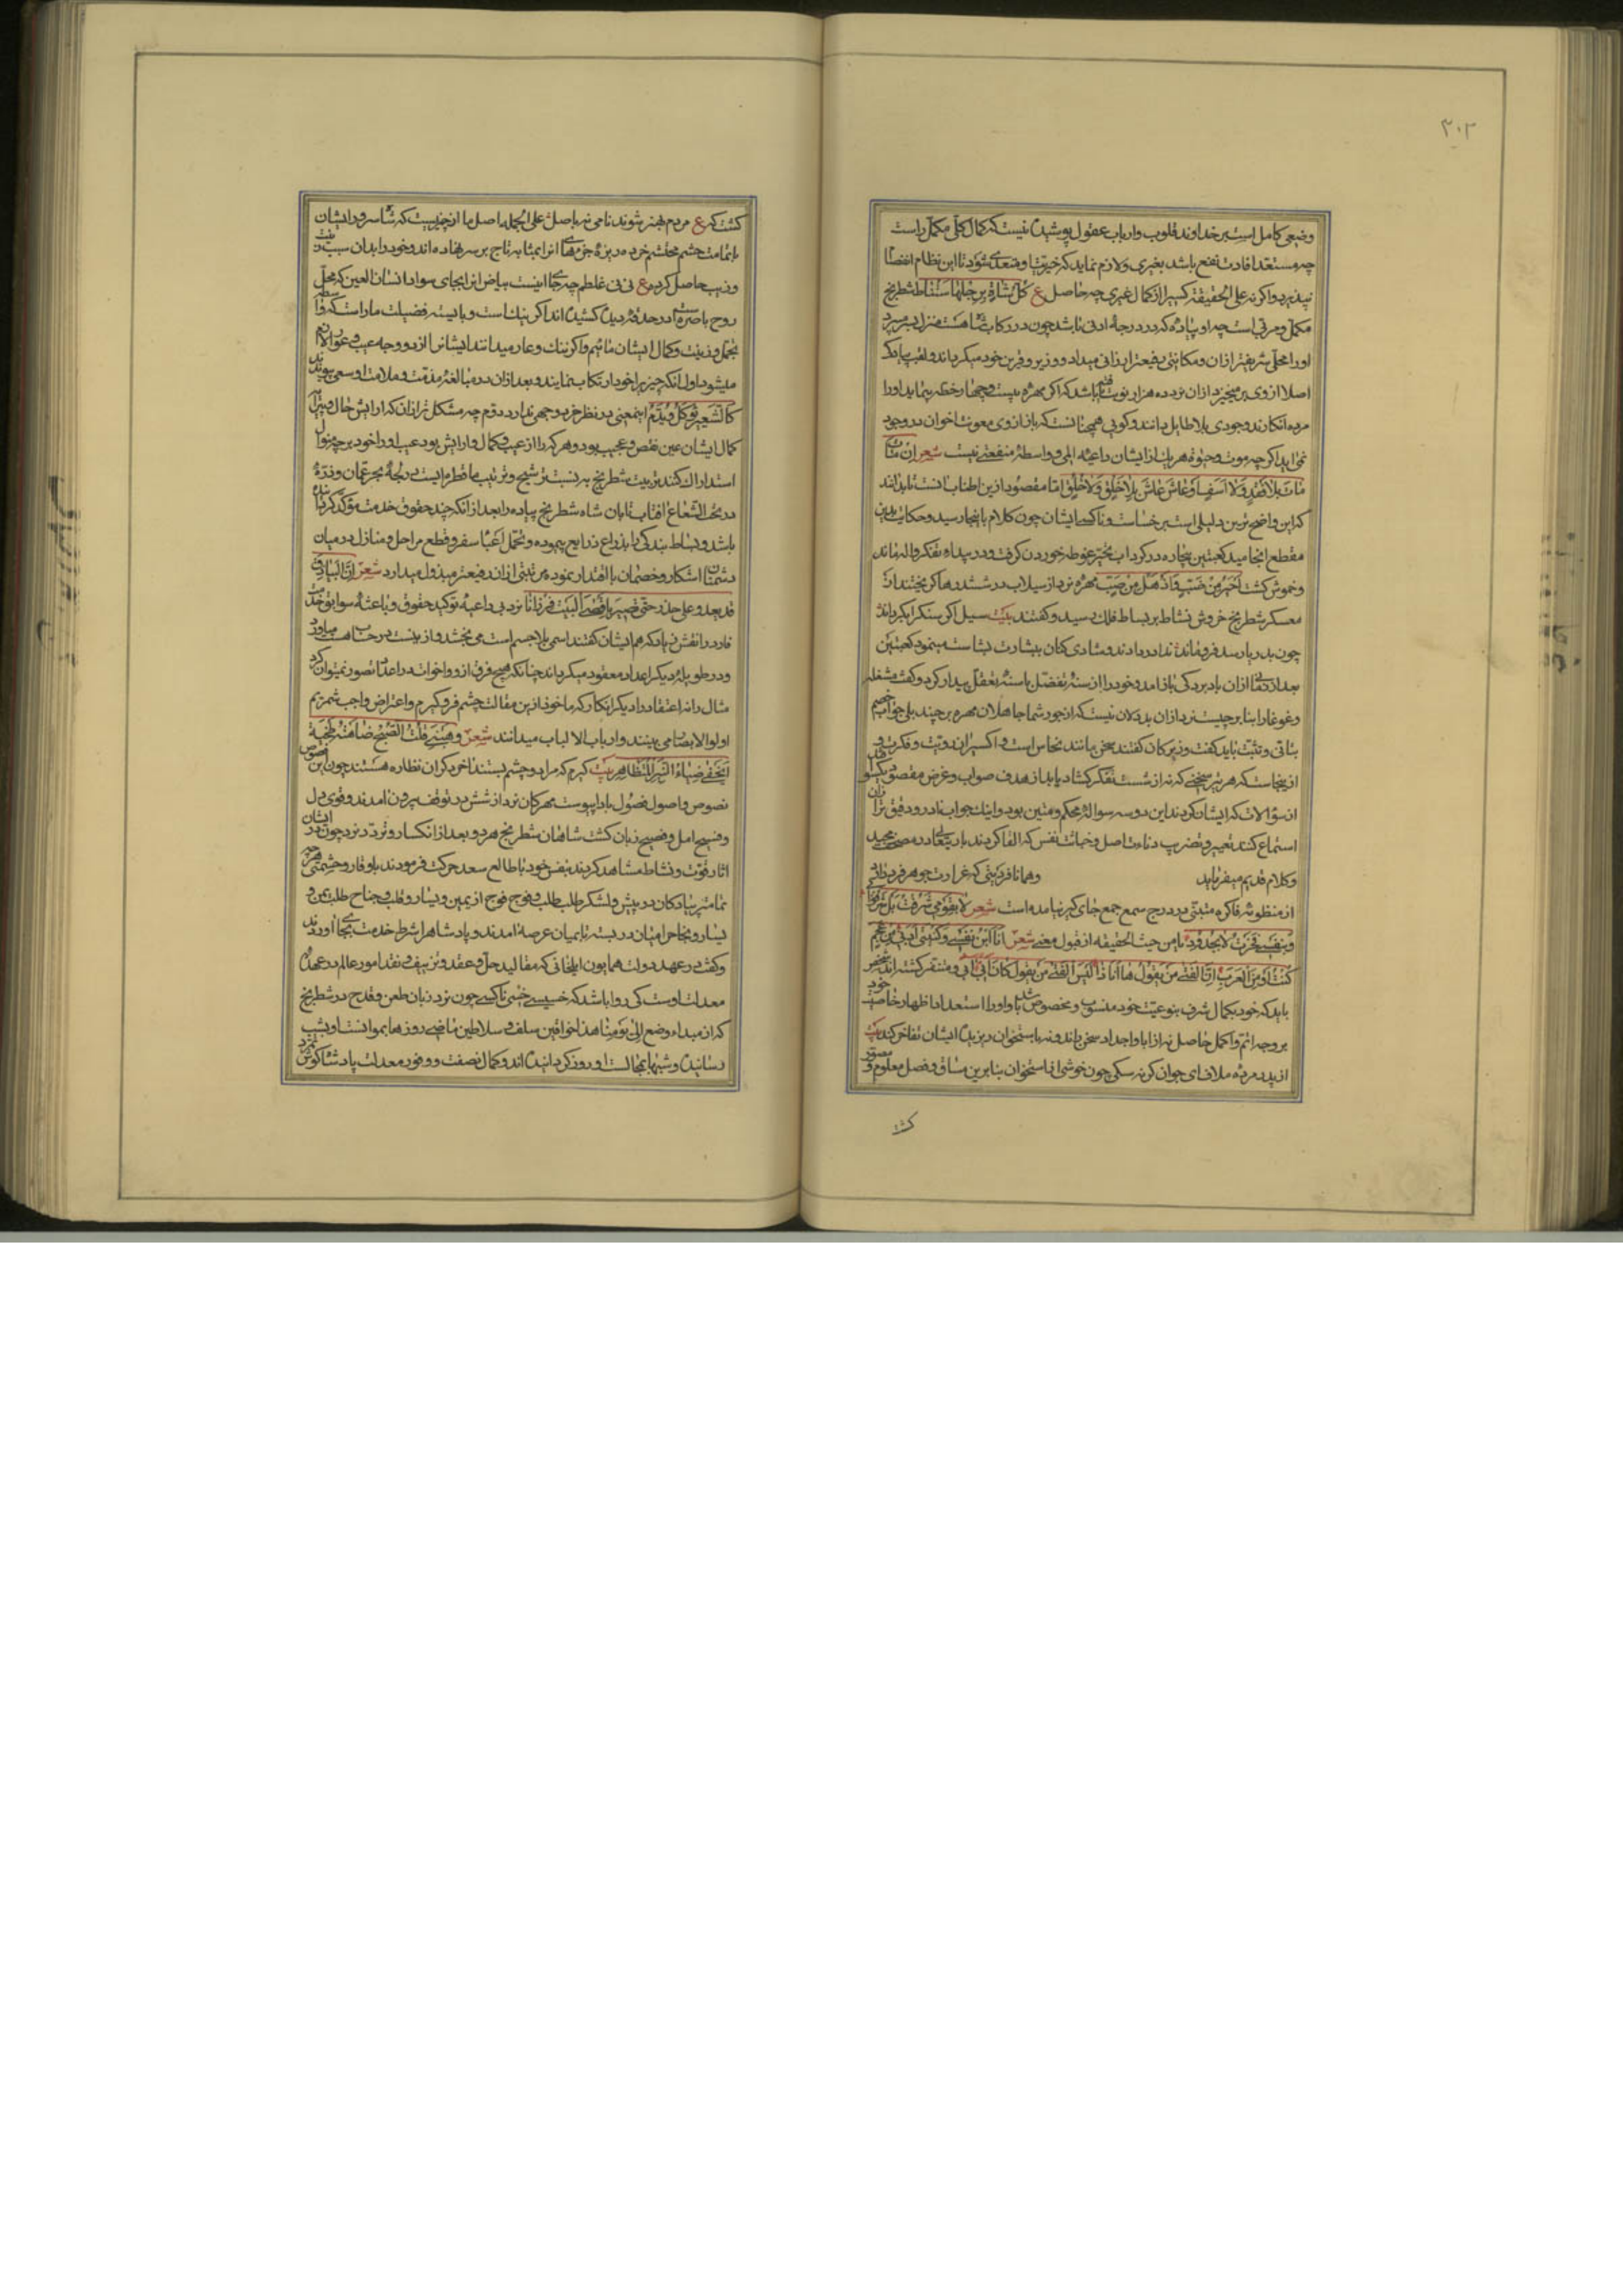 ۳۰۲
وضیعی کامل است بر خداوند قلوب و ارباب عقول پوشیده نیست که کمال کلی مکمل راست
چه مستعد افادت نفع باشد بغیری و لازم نماید که خیرتها و متعدی شود تا این نظام انفصا
نپذیرد و اگر نه علی الحقیقة کسیرا از کمال غیری چه حاصل ع کل شاة برجلها ستناط شطرنج
مکمل و مربی است چه او پیاده که در درجهٔ ادنی باشد چون در رکاب منزل بسر برد
اورا محلی شریفتر ازان و مکانتی رفیعتر ارزانی میدارد و وزیر و قرین خود میگرداند و لقب
اصلا از وی بر میخیزد ازان نرد ده هزار نوبت باشد که اگر مهره بیست و چهار خطه بپیماید اورا
مرده انگارند و وجودی بلا طایل دانند و گویی همچنانست که باز از وی معونتها خوان در وجود
نمی اید اگر چه موت و حیوة هر یک از ایشان داعیه الم و واسطهٔ منفعتی نیست شعر ان مات
مات بلا فقد ولا اسف او عاش عاش بلا خلق ولا خلق اما مقصود ازین اطناب انست تا بدانند
که این واضح ترین دلیلی است بر خساست و ناکسی ایشان چون کلام باینجا رسید و حکایت بدین
مقطع انجامید کعبتین بیچاره در گرداب تحیر غوطه خوردن گرفت و در بیداء تفکر واله بماند
و خموش گشت احیر من ضب و اذهل من صب مهره نرد از سیلاب در ششدرها گریختند از
معسکر شطرنج خروش نشاط بر بساط فلک رسید و گفتند بیت سیل اگر سنگ را بگرداند
چون بدریا رسد فرو ماند ندا در دادند و شادی کنان بشارت بشاست مینمود کعبتین
بعد از زمانی ازان بادبردگی باز امد و خود را از سنهٔ تفضل باسنهٔ تعقل بیدار کرد و گفت مشغله
و غوغا را بنا بر چیست نرد ازان بددلان نیست که از جور شما جاهلان مهره برچیند بلی جواب خصم
بتانی و تثبت باید گفت و زیرکان گفتند سخن مانند نحاس است و اکسیر ان رویت و فکرت و
از ینجاست که هر تیر سخنی که نه از شست تفکر گشاد یابد از هدف صواب و غرض مقصود یکسو افتد
ازان سؤالات که ایشان کردند این دو سه سوال محکم و متین بود و اینک جواب نادر و دقیق ترا
استماع کنند تعییر و تضریب دناءت اصل و خباثت نفس که القا کردند باریتعالی در مصحف مجید
و کلام قدیم میفرماید و همانا قرینتی که غرارت جوهر فرد ذاتی
از منظومهٔ فاکره متنبی در درج سمع جمع جای گیر نیامده است شعر لا بقومی شرفت بل شرفوا بی
و بنفسی فخرت لا بجدودی نا من حیث الحقیقه از قبول معنی شعر انا ابن نفسی و کنیتی ادبی من عجم
کنت او من العرب ان الفتی من یقول ها انا ذا لیس الفتی من یقول کان ابی ابی و متنفر گشته اند شخص
باید که خود بکمال شرف بنوعیت خود منسوب و مخصوص باشد و اورا استعداد اظهار خاصیت خود
بر وجه اتم و اکمل حاصل نه از اباو اجداد سخن راند و نه باستخوان ریزیدهٔ ایشان تفاخر کند بیت
از پدر مرده ملاف ای جوان گر نه سگی چون خوشی از استخوان بنابرین مساق و فصل معلوم و مصور
گشت
گشت که ع مردم بهنر شوند نامی نه باصل علی الجمله اصل ما از چیزیست که شما سر و را ایشان
باتمامت حشم محتشم خرده ریزهٔ جزءهای انرا بمثابه تاج بر سر نهاده اند و خود را بدان سبب زینت
و زیب حاصل کرده ع نی نی غلطم چه جای اینست بیاض انرا بجای سواد انسان العین که محل
روح باصره است در حدقهٔ دیده کشیده اند اگر نیک است و بایسته فضیلت ما راست که واسطه
تجمل و زینت و کمال ایشان مائیم و اگر ننگ و عار میدانند ایشانرا از دو وجه عیب و عوار لازم
میشود اول انکه چیزیرا خود ارتکاب نمایند و بعد ازان در مبالغهٔ مذمت و ملامت او سعی پیوندند
کالشعیر توکل و یذم اینمعنی در نظر خرد وجهی ندارد دوم چه مشکل تر ازان که ارایش حال و پیرایهٔ
کمال ایشان عین نقص و عجیب بود و هر که را از عیب کمال و ارایش بود عیب او را خود بر چه نوع
استدراک کنند تربیت شطرنج به نسبت ترشیح و ترتیب ما قطره ایست در لجهٔ بحر عمان و ذرهٔ
در تحت الشعاع افتاب تابان شاه شطرنج پیاده را بعد از انکه چند حقوق خدمت مؤکد گردانیده
باشد و بساط بندگی را بذراع ذرایع پیموده و تحمل اعباء سفر و قطع مراحل و منازل در میان
دشمنان اشکار و خصمان با اقتدار نموده مرتبتی ازان رفیعتر مبذول میدارد شعر ان البیاذق
قد یعد و علی حذر حتی تصیر باقصی البیت فرزانا نرد بی داعیه توکید حقوق و باعثهٔ سوابق خدمت
قارد را نقش زیاد که هم ایشان گفتند اسمی بلا جسم است می بخشد و از نیست در حساب هست میاورد
و در طویله دیگر اعداد معقود میگرداند چنانکه هیچ فرق ازو و اخوات در اعداد تصور نمیتوان کرد
مثال را نه اعتقاد را دیگر انکار که ماخوذ ازین مقالت چشم فرو گیرم و اعتراض واجب شمریم
اولوا الابصار می بینند و ارباب الالباب میدانند شعر و هبنی قلت الصبح ضامنه لمحجبة
ایخفی ضیاء النیر للنظاهر بیت گیرم که مرا دو چشم بستند اخر دگران نظاره هستند چون این نصوص
نصوص و اصول فصول باد اپیوست مهرگان نرد از شش در توقف بیرون امدند و قوی دل
و فسیح امل و فصیح زبان گشت شاهان شطرنج هر دو بعد از انکسار و تردد نرد چون در ایشان
اثار قوت و نشاط مشاهده کردند بنفس خود با طالع سعد حرکت فرمودند با وقار و حشمتی هر چه
تمامتر پیادگان در پیش و لشکر طلب طلب و فوج فوج از یمین و یسار و قلب و جناح طلب یمن و
یسار و نجاح را میان در بسته تا بمیان عرصه امدند و پادشاه را شرط خدمت بجای اوردند
و گفتی در عهد دولت همایون ایلخانی که مقالید حل و عقد و تزییف و نقد امور عالم در عهدهٔ
معدلت اوست کی روا باشد که خسیسی خسی ناکسی چون نرد زبان طعن و قدح در شطرنج
که از مبداء وضع الی یومنا هذا خواقین سلف و سلاطین ماضی روزها بموانست او بشب
رسانیده و شبها بمجالست او روز گردانیده اند و کمال نصفت و وفور معدلت پادشاه گوش